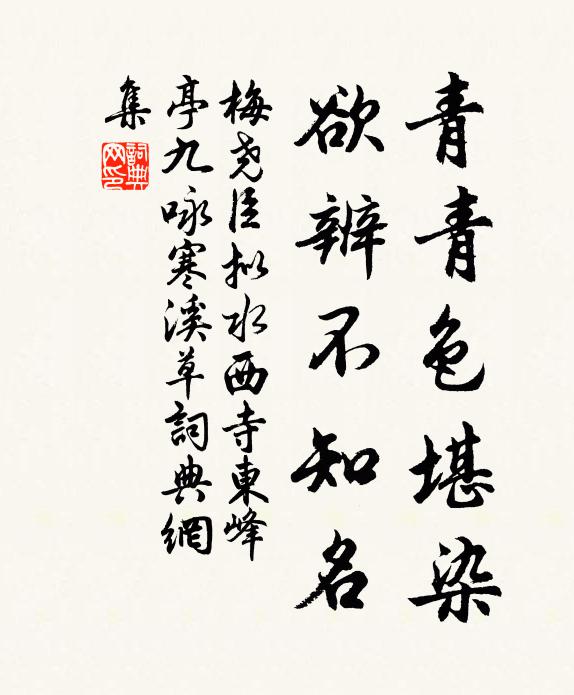 青青色堪染
欲辨不知名
梅堯臣拟水西寺東峰
亭九咏寒溪草詞典網
集
詞典
网印